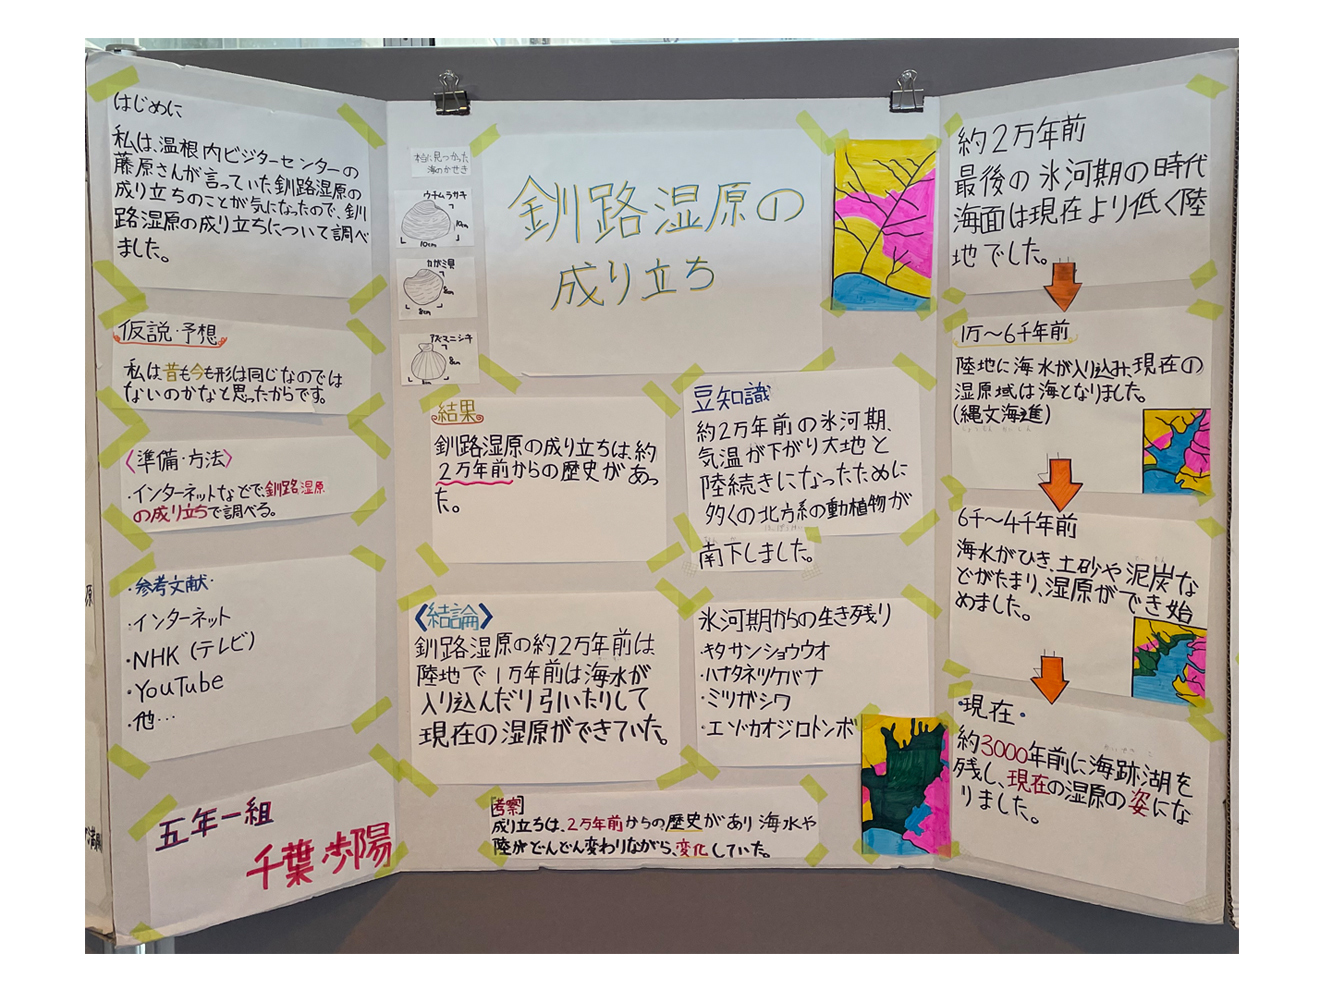 はじめに
私は、温根内ビジターセンターの
藤原さんが言っていた釧路湿原の
成り立ちのことが気になったので、釧
路湿原の成り立ちについて調べ
ました。
仮説・予想
私は昔も今も形は同じなのでは
ないのかなと思ったからです。
〈準備・方法〉
・インターネットなどで、釧路湿原
の成り立ちで調べる。
・参考文献・
・インターネット
・NHK(テレビ)
・YouTube
・他…
五年一組
千葉歩陽
本当に見つかった
海のかせき
ウチムラサキ
10cm
10cm
カガミ貝
8cm
8cm
アズマニシキ
8cm
釧路湿原の
成り立ち
結果
釧路湿原の成り立ちは、約
2万年前からの歴史があっ
た。
豆知識
約2万年前の氷河期、
気温が下がり大地と
陸続きになったために
多くの北方系の動植物が
南下しました。
〈結論〉
釧路湿原の約2万年前は
陸地で1万年前は海水が
入り込んだり引いたりして
現在の湿原ができていた。
氷河期からの生き残り
・キタサンショウウオ
・ハナタネツケバナ
・ミツガシワ
・エゾカオジロトンボ
[考察]
成り立ちは、2万年前からの歴史があり海水や
陸がどんどん変わりながら、変化していた。
約2万年前
最後の氷河期の時代
海面は現在より低く陸
地でした。
1万〜6千年前
陸地に海水が入り込み、現在の
湿原域は海となりました。
(縄文海進)
6千〜4千年前
海水がひき、土砂や泥炭な
どがたまり、湿原ができ始
めました。
・現在・
約3000年前に海跡湖を
残し、現在の湿原の姿にな
りました。